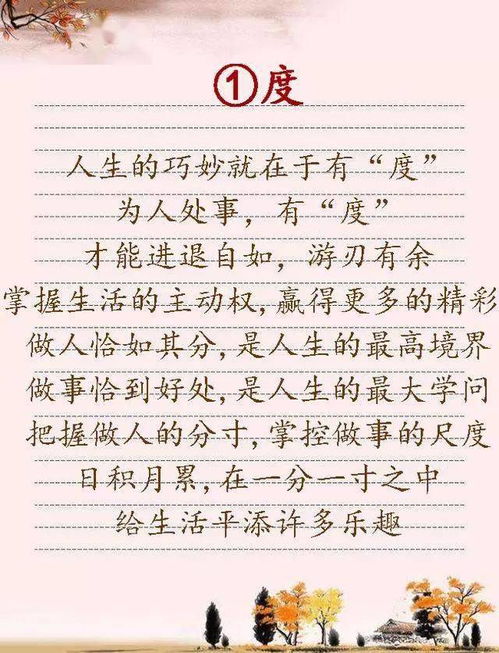 ①度
人生的巧妙就在于有“度”
为人处事，有“度”
才能进退自如，游刃有余
掌握生活的主动权，赢得更多的精彩
做人恰如其分，是人生的最高境界
做事恰到好处，是人生的最大学问
把握做人的分寸，掌控做事的尺度
日积月累，在一分一寸之中
给生活平添许多乐趣